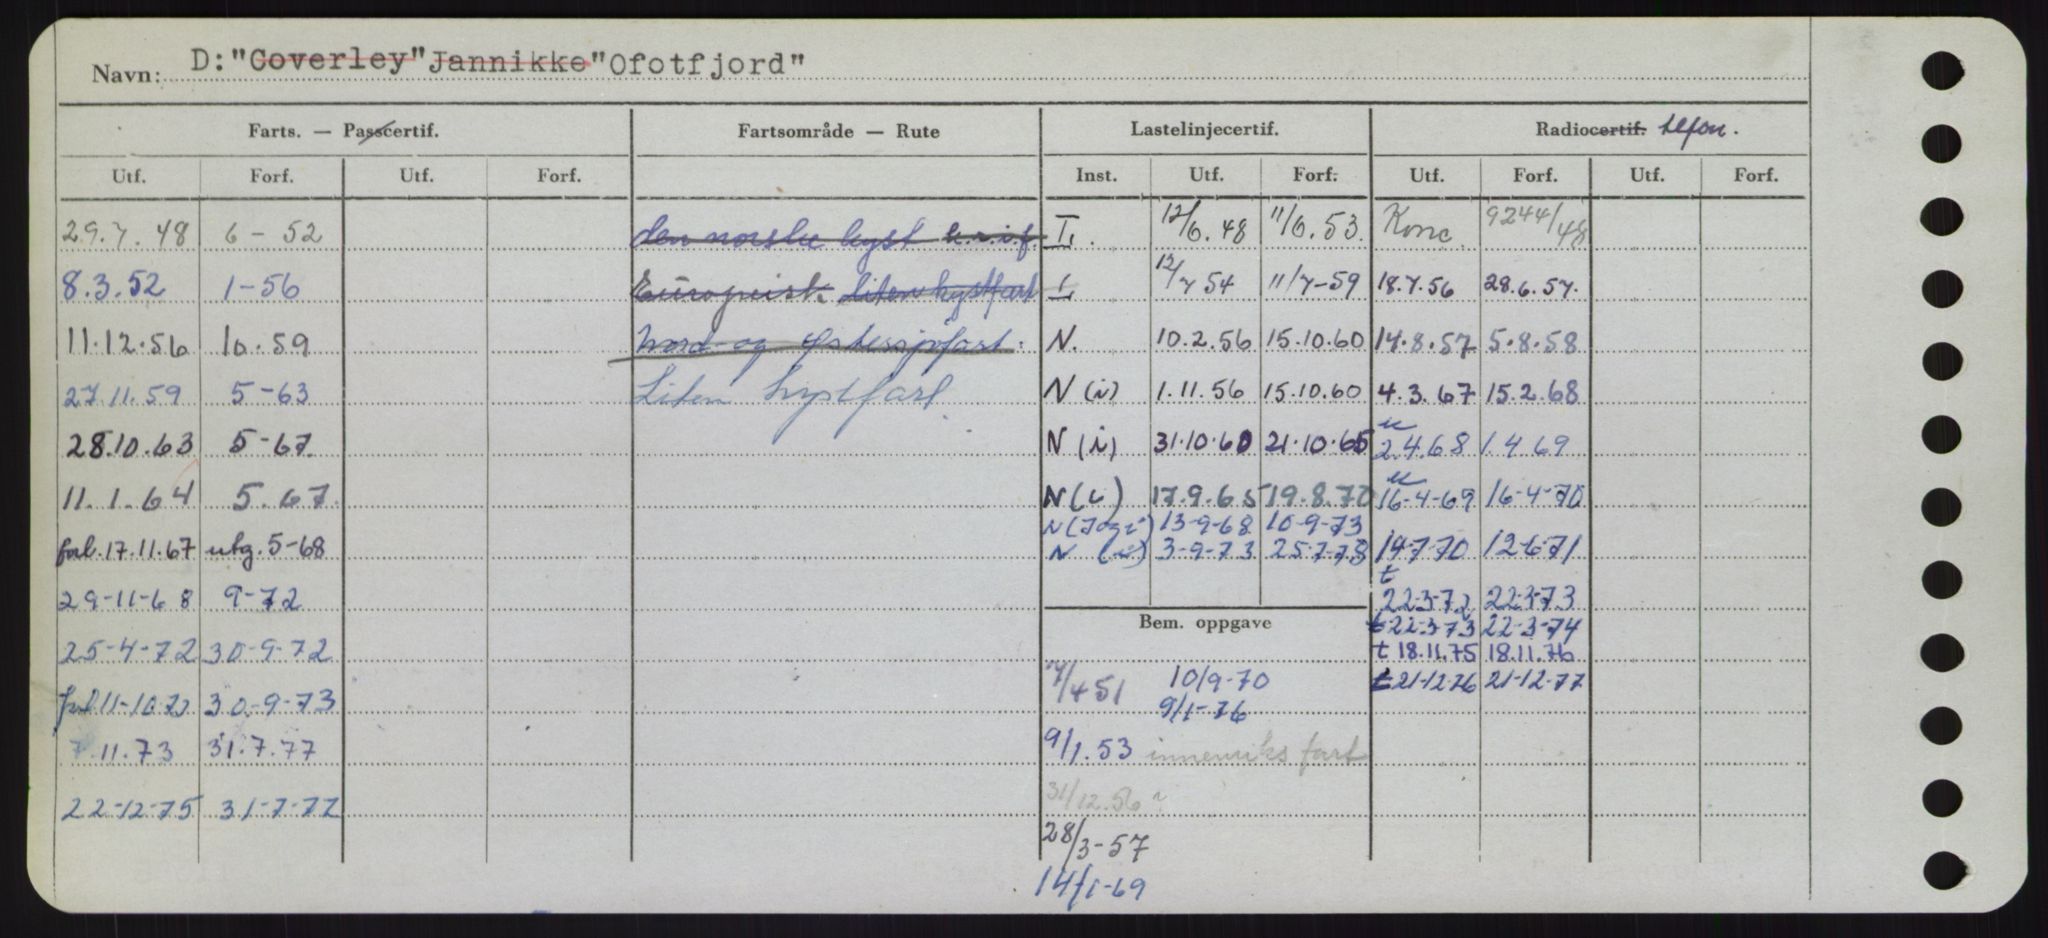 Navn: D: "Coverley" Jannikke "Ofotfjord"
Farts. — Passcertif. Fartsområde — Rute Lastelinjecertif. Radiocertif. tlfon.
Utf. Forf. Utf. Forf. Inst. Utf. Forf. Utf. Forf. Utf. Forf.
29.7.48 6-52 den norske kyst I. 12/6.48 11/6.53. Konc. 9244/48
8.3.52 1-56 Europeisk. Liten kystfart I 12/7 54 11/7-59 18.7.56 28.6.57.
11.12.56 10.59 Nord- og Østersjøfart. N. 10.2.56 15.10.60 14.8.57 5.8.58
27.11.59 5-63 Liten kystfart N (i) 1.11.56 15.10.60 4.3.67 15.2.68
28.10.63 5-67. N (i) 31.10.60 21.10.65 u 2.4.68 1.4.69
11.1.64 5.67. N (i) 17.9.65 19.8.70 u 16-4-69 16-4-70
N (I og i) 13-9-68 10-9-73
forl. 17.11.67 utg. 5-68 N (i) 3-9-73 25-7-78 14-7-70 12-6-71
29-11-68 9-72 t 22-3-72 22-3-73
Bem. oppgave t 22-3-73 22-3-74
25-4-72 30-9-72 t 18.11.75 18.11.76
/4 51 10/9-70 t 21-12-76 21-12-77
forl 11-10-72 30-9-73 9/1-76
7.11.73 31.7.77 9/1.53 innenriks fart
22-12-75 31-7-77 31/12.56
28/3-57
14/1-69